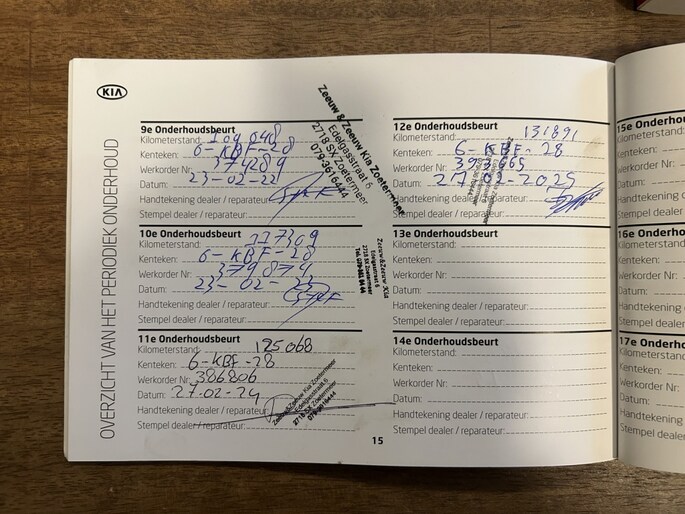 KIA
OVERZICHT VAN HET PERIODIEK ONDERHOUD
9e Onderhoudsbeurt
Kilometerstand: 109 048
Kenteken: 6-KBF-28
Werkorder Nr: 374289
Datum: 23-02-22
Handtekening dealer / reparateur:
Stempel dealer / reparateur:
Zeeuw & Zeeuw Kia Zoetermeer
Edelgasstraat 6
2718 SX Zoetermeer
079-3616444
10e Onderhoudsbeurt
Kilometerstand: 117309
Kenteken: 6-KBF-28
Werkorder Nr: 379874
Datum: 23-02-23
Handtekening dealer / reparateur:
Stempel dealer / reparateur:
Zeeuw&Zeeuw Kia
Edelgasstraat 6
2718 SX Zoetermeer
11e Onderhoudsbeurt
Kilometerstand: 125068
Kenteken: 6-KBF-28
Werkorder Nr: 386806
Datum: 27-02-24
Handtekening dealer / reparateur:
Stempel dealer / reparateur:
Zeeuw&Zeeuw Kia Zoetermeer
Edelgasstraat 6
2718 SX Zoetermeer
079-3616444
12e Onderhoudsbeurt
Kilometerstand: 131891
Kenteken: 6-KBF-28
Werkorder Nr: 393665
Datum: 27-02-2025
Handtekening dealer / reparateur:
Stempel dealer / reparateur:
13e Onderhoudsbeurt
Kilometerstand:
Kenteken:
Werkorder Nr:
Datum:
Handtekening dealer / reparateur:
Stempel dealer / reparateur:
14e Onderhoudsbeurt
Kilometerstand:
Kenteken:
Werkorder Nr:
Datum:
Handtekening dealer / reparateur:
Stempel dealer / reparateur:
15
15e Onderho
Kilometerstand
Kenteken:
Werkorder N
Datum:
Handtekening
Stempel deale
16e Onderho
Kilometerstan
Kenteken:
Werkorder N
Datum:
Handtekening
Stempel dealer
17e Onderho
Kilometerstan
Kenteken:
Werkorder Nr
Datum:
Handtekening
Stempel dealer